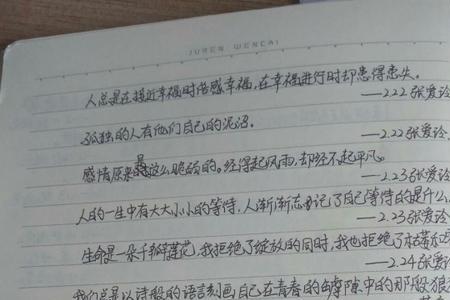 JUREN WENCAI
人总是在接近幸福时倍感幸福,在幸福进行时却患得患失。
——2.22 张爱玲
孤独的人有他们自己的泥沼。
——2.22 张爱玲
感情原来是这么脆弱的。经得起风雨,却经不起平凡。
——2.23 张爱玲
人的一生中有大大小小的等待,人渐渐忘记了自己等待的是什么。
——2.23 张爱玲
生命是一朵千瓣莲花,我拒绝了绽放的同时,我也拒绝了枯萎
——2.24 张爱
我们总是以诗般的语言刻画自己在青春的罅隙中的那段狼